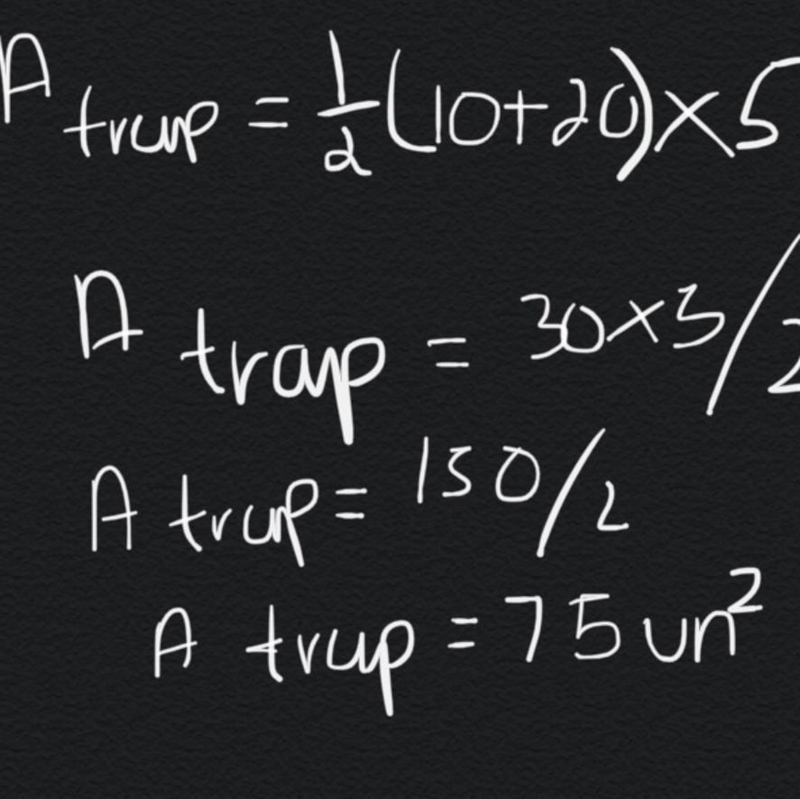 A trap = 1/2 (10+20)×5
A trap = 30×5/2
A trap = 150/2
A trap = 75 un²